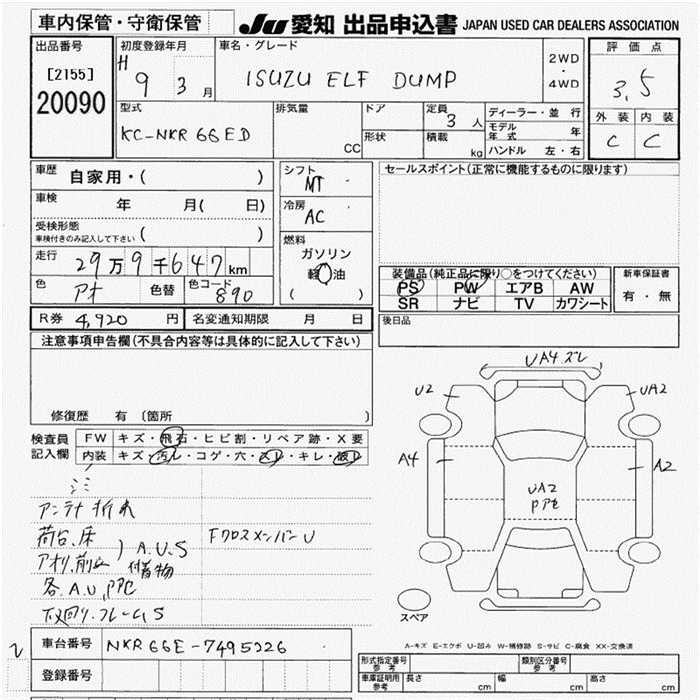 車内保管・守衛保管
JU 愛知 出品申込書 JAPAN USED CAR DEALERS ASSOCIATION
出品番号
[2155]
20090
初度登録年月
H 9 3 月
車名・グレード
ISUZU ELF DUMP
2WD
・
4WD
評価点
3.5
外装 内装
C C
型式
KC-NKR66ED
排気量
CC
ドア
形状
定員
3 人
積載
kg
ディーラー・並行
モデル年式 年
ハンドル 左・右
車歴
自家用・( )
車検
年 月( 日)
受検形態
車検付きのみ記入して下さい ( )
走行
29万9千647km
色
アオ
色替
色コード
890
シフト
MT
冷房
AC
燃料
ガソリン
軽油
( )
セールスポイント(正常に機能するものに限ります)
装備品(純正品に限り○をつけてください)
PS PW エアB AW
SR ナビ TV カワシート
新車保証書
有・無
後日品
R券 4,920 円
名変通知期限 月 日
注意事項申告欄(不具合内容等は具体的に記入して下さい)
修復歴 有 (箇所 )
検査員
記入欄
FW キズ・飛石・ヒビ割・リペア跡・X要
内装 キズ・汚レ・コゲ・穴・スレ・キレ・破レ
アンテナ折れ
荷台、床
アオリ、前立
) A.U.S
付着物
各A.U、Pアセ
下回り、フレームS
Fクロスメンバー U
UA4 ズレ
U2
UA2
A4
A2
UA2
Pアセ
スペア
車台番号 NKR66E-7495226
登録番号
2
A-キズ E-エクボ U-凹み W-補修跡 S-サビ C-腐食 XX-交換済
形式指定番号
参考
類別区分番号
参考
車庫証明用
参考
長さ cm 幅 cm 高さ cm